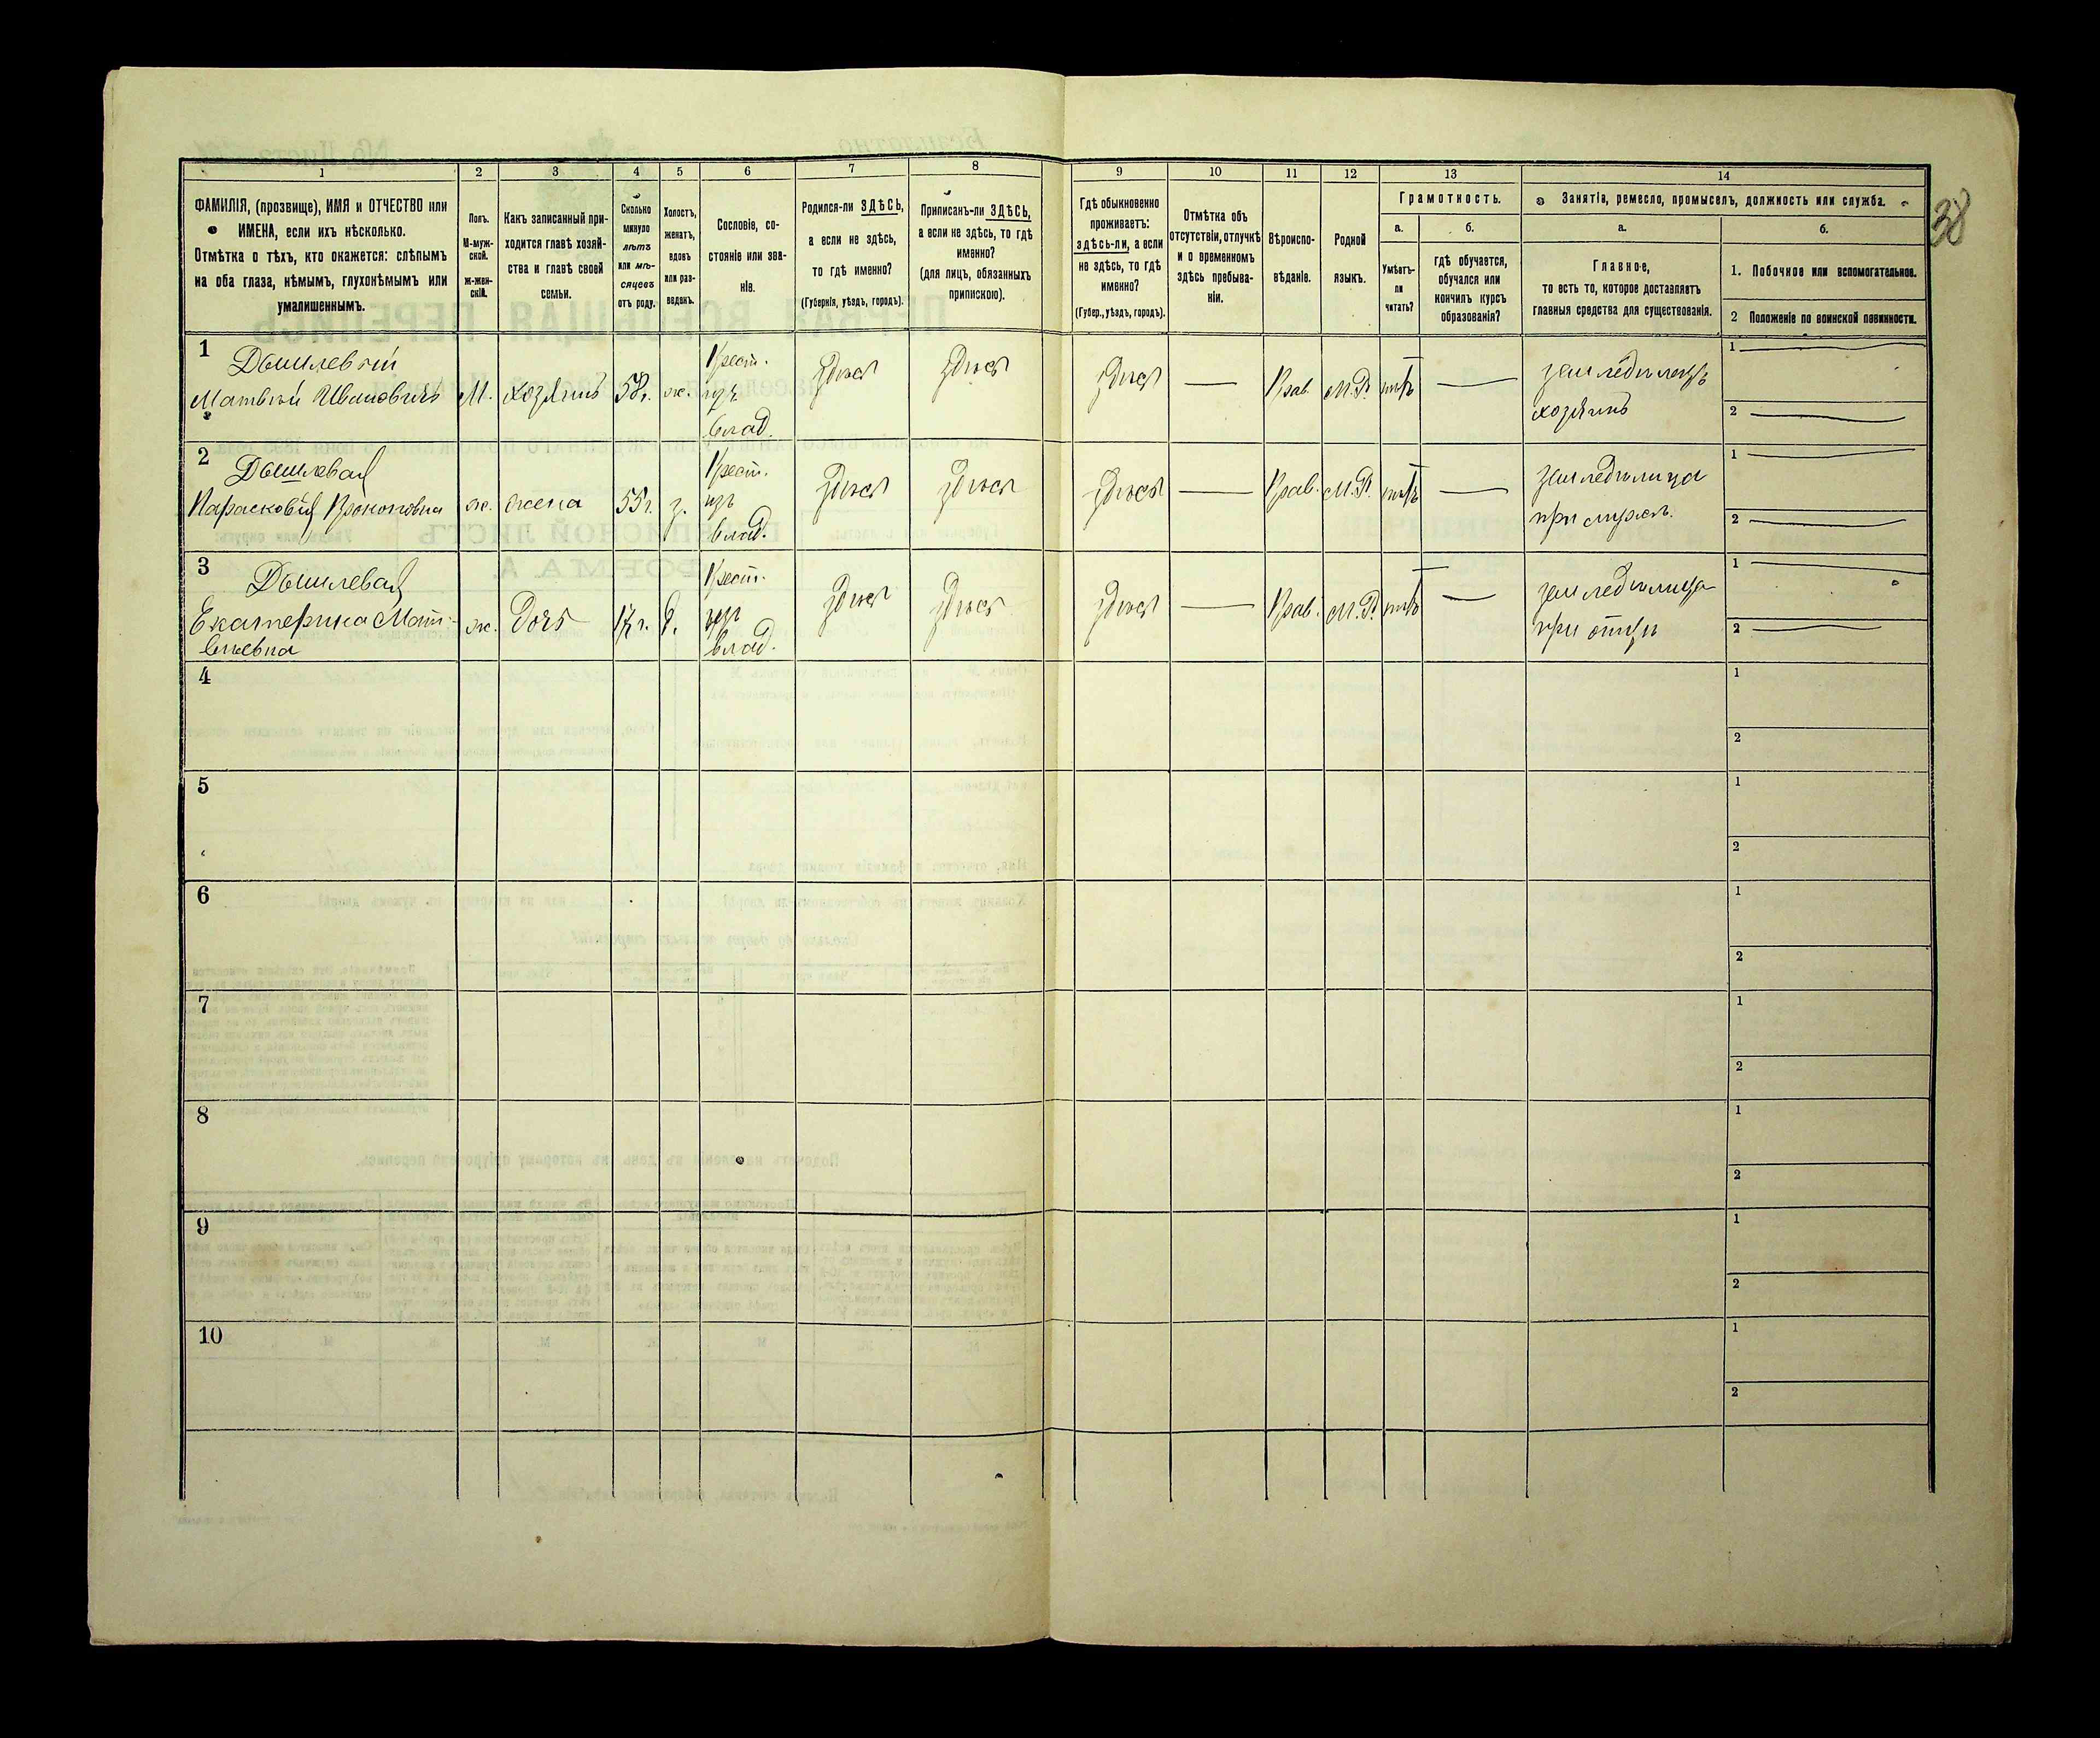 38
1 2 3 4 5 6 7 8 9 10 11 12 13 14
ФАМИЛІЯ, (прозвище), ИМЯ и ОТЧЕСТВО или
ИМЕНА, если ихъ нѣсколько.
Отмѣтка о тѣхъ, кто окажется: слѣпымъ
на оба глаза, нѣмымъ, глухонѣмымъ или
умалишеннымъ.
Полъ.
М-муж-
ской.
ж-жен-
скій.
Какъ записанный при-
ходится главѣ хозяй-
ства и главѣ своей
семьи.
Сколько
минуло
лѣтъ
или мѣ-
сяцевъ
отъ роду.
Холостъ,
женатъ,
вдовъ
или раз-
веденъ.
Сословіе, со-
стояніе или зва-
ніе.
Родился-ли ЗДѢСЬ,
а если не здѣсь,
то гдѣ именно?
(Губернія, уѣздъ, городъ).
Приписанъ-ли ЗДѢСЬ,
а если не здѣсь, то гдѣ
именно?
(для лицъ, обязанныхъ
припискою).
Гдѣ обыкновенно
проживаетъ:
здѣсь-ли, а если
не здѣсь, то гдѣ
именно?
(Губер., уѣздъ, городъ).
Отмѣтка объ
отсутствіи, отлучкѣ
и о временномъ
здѣсь пребыва-
ніи.
Вѣроиспо-
вѣданіе.
Родной
языкъ.
Грамотность.
а.
Умѣетъ-
ли
читать?
б.
гдѣ обучается,
обучался или
кончилъ курсъ
образованія?
Занятія, ремесло, промыселъ, должность или служба.
а.
Главное,
то есть то, которое доставляетъ
главныя средства для существованія.
б.
1. Побочное или вспомогательное.
2 Положеніе по воинской повинности.
1
Матвѣй Ивановичъ
М.
хозяинъ
58 г.
ж.
Крест.
изъ
влад.
здѣсь
здѣсь
здѣсь
Прав.
М.Р.
нѣтъ
земледѣлецъ
хозяинъ
1
2
2
Парасковія Прокоповна
ж.
жена
55 г.
з.
Крест.
изъ
влад.
здѣсь
здѣсь
здѣсь
Прав.
М.Р.
нѣтъ
земледѣлица
при мужѣ.
1
2
3
Екатерина Мат-
вѣевна
ж.
Дочь
17 г.
д.
Крест.
изъ
влад.
здѣсь
здѣсь
здѣсь
Прав.
М.Р.
нѣтъ
земледѣлица
при отцѣ
1
2
4
1
2
5
1
2
6
1
2
7
1
2
8
1
2
9
1
2
10
1
2